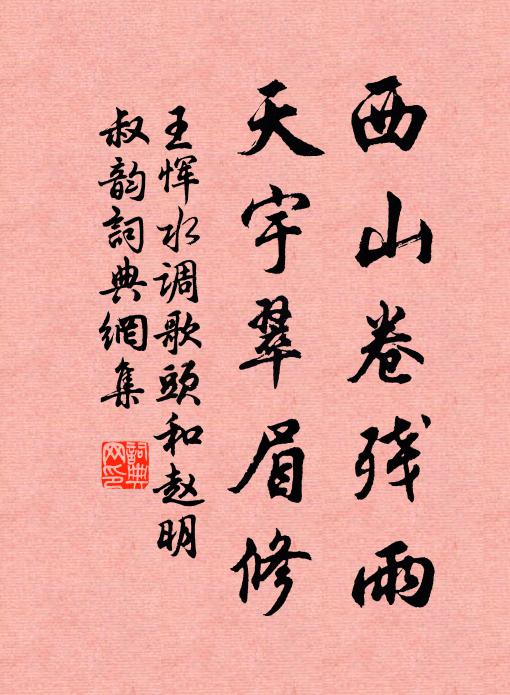 西山卷残雨
天宇翠眉修
王恽水调歌頭和赵明
叔韵詞典網集
詞典網印